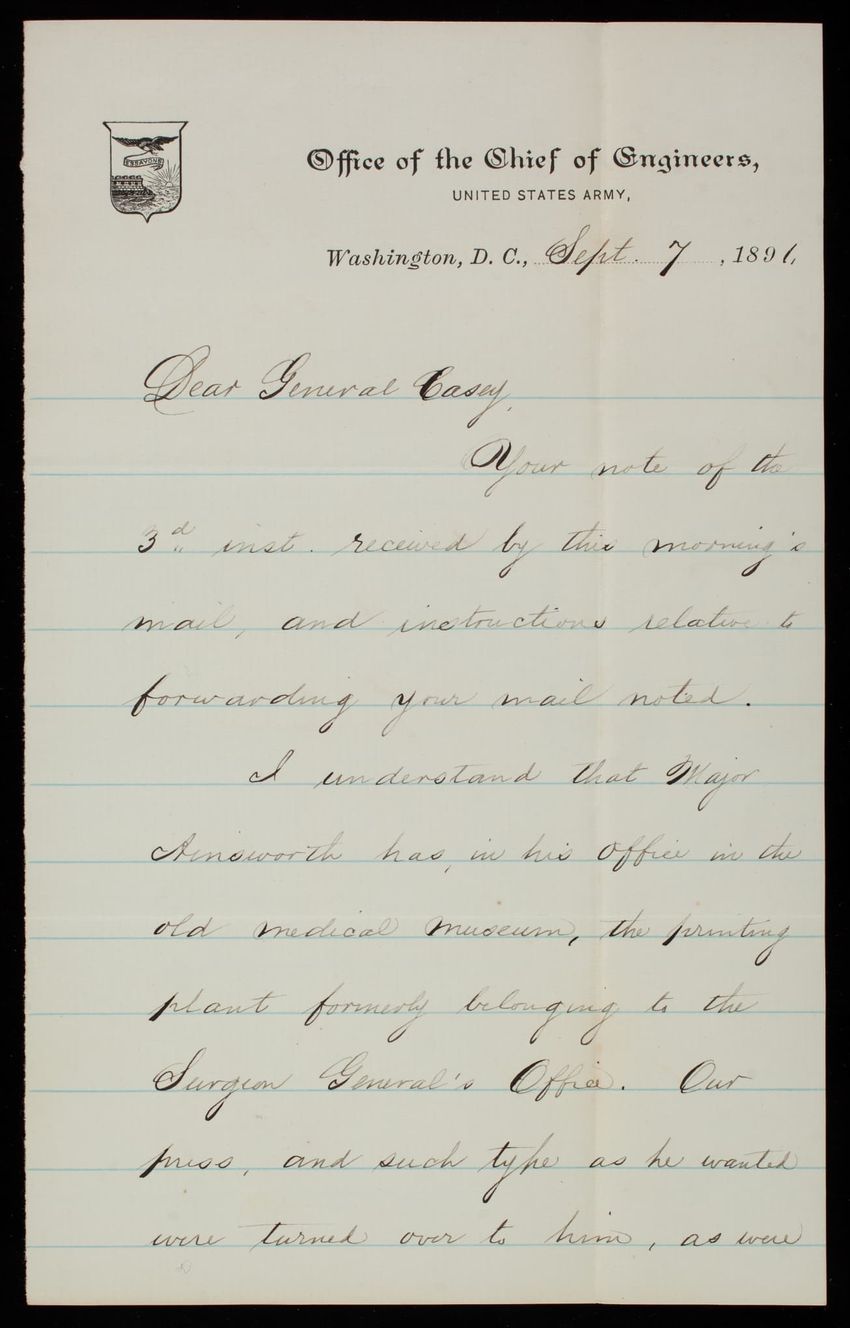 ESSAYONS
Office of the Chief of Engineers,
UNITED STATES ARMY,
Washington, D. C., Sept. 7, 1891,
Dear General Casey,
Your note of the
3d inst. received by this morning's
mail, and instructions relative to
forwarding your mail noted.
I understand that Major
Ainsworth has, in his office in the
old medical museum, the printing
plant formerly belonging to the
Surgeon General's Office. Our
press, and such type as he wanted
were turned over to him, as were